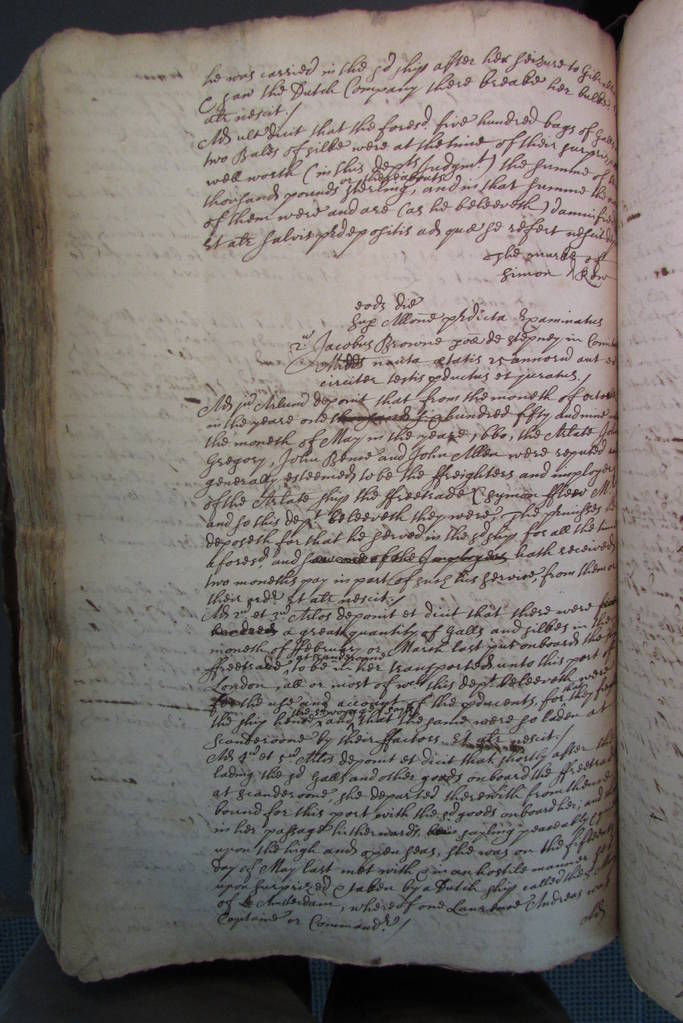 he was carried in the sd ship after her seisure to
& saw the Dutch Company there breake her bulke
atr nescit./
Ad ult dicit that the foresd five hundred bags of Galls
two Bales of silke were at the time of their surprizall
well worth (in this depts judgmt) the summe of
thousands pounds or thereabouts sterling, and in that summe the
of them were and are (as he beleeveth) damnified
Et atr salvis prdepositis ad quæ se refert nescit
The marke of
Simon Kew
eodm die
Sup Allone prdicta Examinatus
2us Jacobus Browne de Stepney in Com
Midds nauta ætatis 25 annorum aut eo
circiter testis productus et juratus./
Ad jum Arlum deponit that from the moneth of October
in the yeare one thousand six hundred fifty and nine
the moneth of May in the yeare 1660, the Arlate John
Gregory, John Bence and John Allen were reputed and
generally esteemed to be the ffreighters and imployers
of the Arlate ship the ffreetrade (Symon fflew Mr)
and so this dept beleeveth they were, The prmisses he
deposeth for that he served in the sd ship for all the time
aforesd and saw one of the Imployers hath received
two moneths pay in part of such his service from them or
their order Et atr nescit./
Ad 2um et 3um Arlos deponit et dicit that there were
hundred a great quantity of Galls and silkes in the
moneth of ffebruary or March last put onboard the
ffreetrade at Scanderoone to be in her transported unto this port of
London, all or most of wch this dept beleeveth were
for the use and account of the producents, for they
the ship hence, and that the same were so laden at
Scanderoone by their ffactors, Et atr nescit./
Ad 4um et 5um Arlos deponit et dicit that shortly after the
lading, the sd Galls and other goods onboard the ffreetrade
at Scanderoone, she departed therewith from thence
bound for this port with the sd goods onboard her, and
in her passage hitherwards sayling peaceably
upon the high and open seas, she was on the fifteenth
day of May last met with & in an hostile manner set
upon surprized & taken by a Dutch ship called the
of Amsterdam, whereof one Laurence Andreas was
Captaine or Commander./
Ad